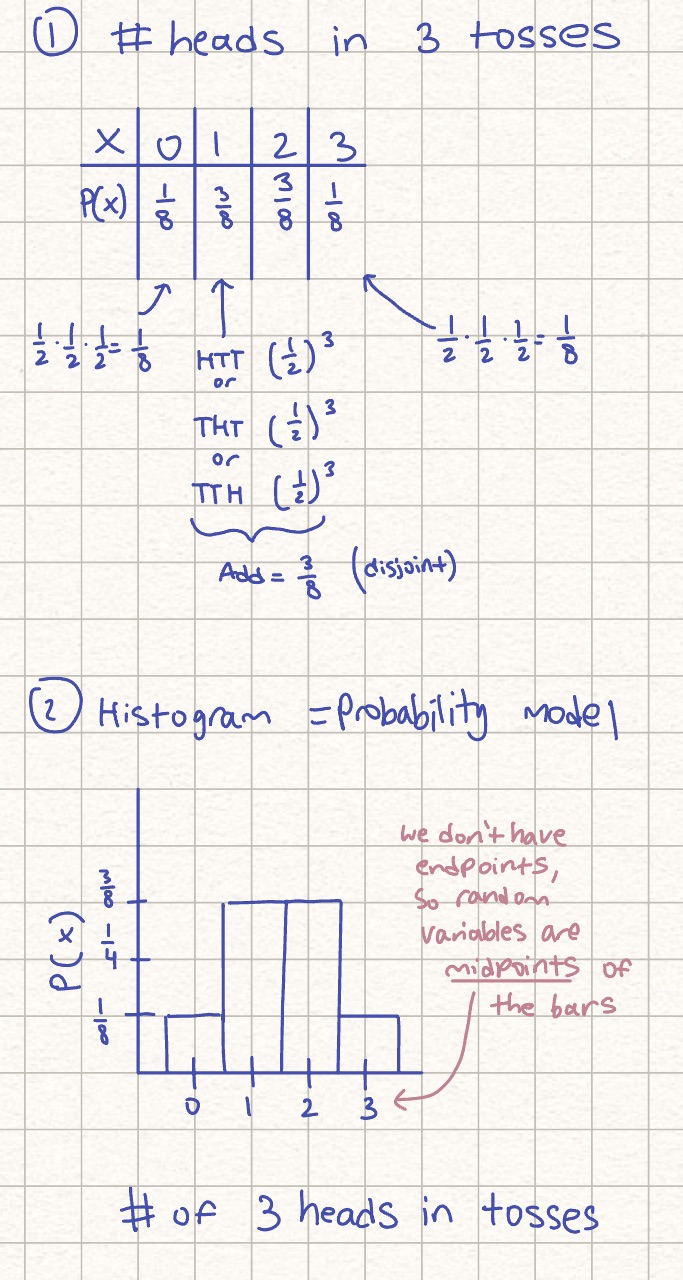 ① # heads in 3 tosses
X 0 1 2 3
P(x) 1/8 3/8 3/8 1/8
1/2 · 1/2 · 1/2 = 1/8
HTT (1/2)^3
or
THT (1/2)^3
or
TTH (1/2)^3
Add = 3/8 (disjoint)
1/2 · 1/2 · 1/2 = 1/8
② Histogram = Probability model
P(x)
3/8
1/4
1/8
0 1 2 3
we don't have
endpoints,
so random
variables are
midpoints of
the bars
# of 3 heads in tosses